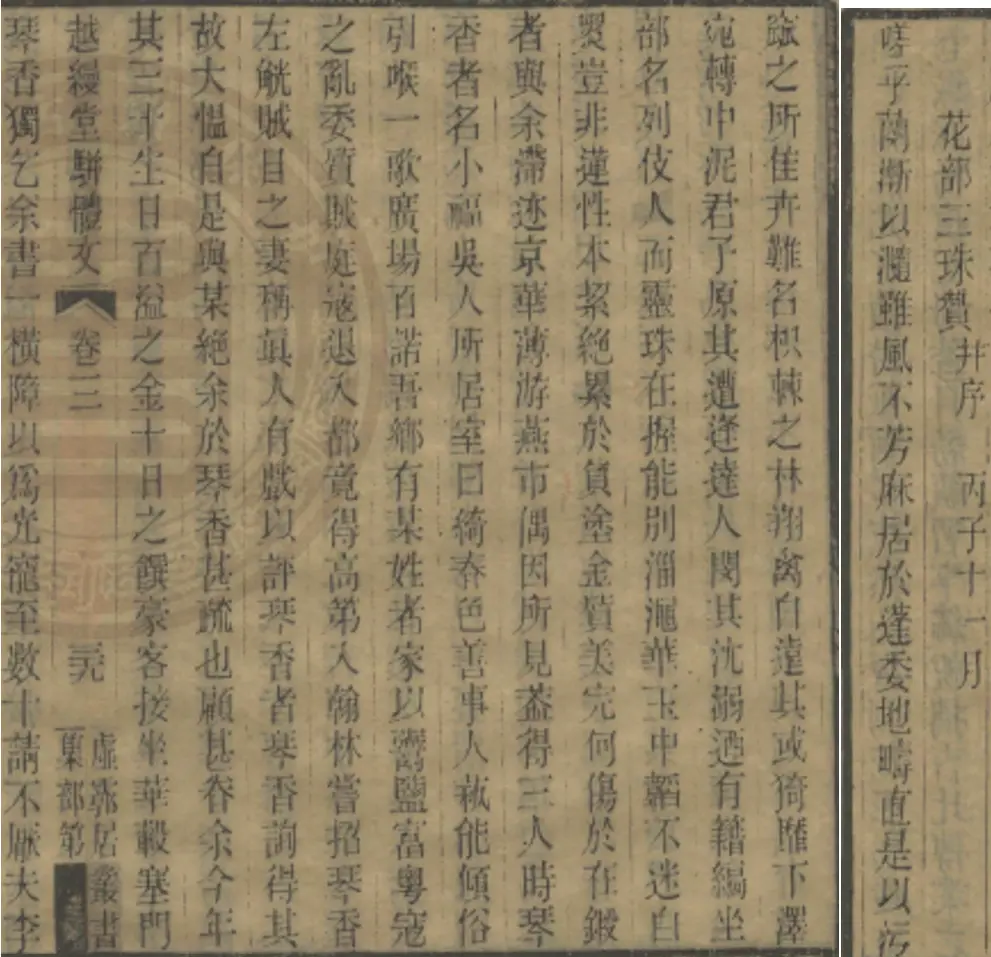 花部三珠贊 并序 丙子十一月
嗟乎蘭漸以滫雖風不芳麻居於蓬委地疇直是以污
之所佳卉難名枳棘之林翔禽自遠其或猗靡下澤
宛轉中泥君子原其遭逢達人閔其沈溺迺有籍編坐
部名列伎人而靈珠在握能別淄澠華玉中韜不迷白
豈非蓮性本絜絶累於負塗金質美完何傷於在鍛
者與余滯迹京華薄游燕市偶因所見葢得三人時琴
香者名小福吳人所居室曰綺春色善事人萟能傾俗
引喉一歌廣場百諾吾鄉有某姓者家以鬻鹽富粵寇
之亂委質賊庭寇退入都竟得高第入翰林嘗招琴香
左觥賊目之妻稱眞人有戲以評琴香者琴香詢得其
故大愠自是與某絶余於琴香甚疏也顧甚眷余今年
其三十生日百溢之金十日之饌豪客接坐華轂塞門
越縵堂駢體文 卷三
虛霩居叢書
集部第
琴香獨乞余書一橫障以爲光寵至數十請不厭夫李